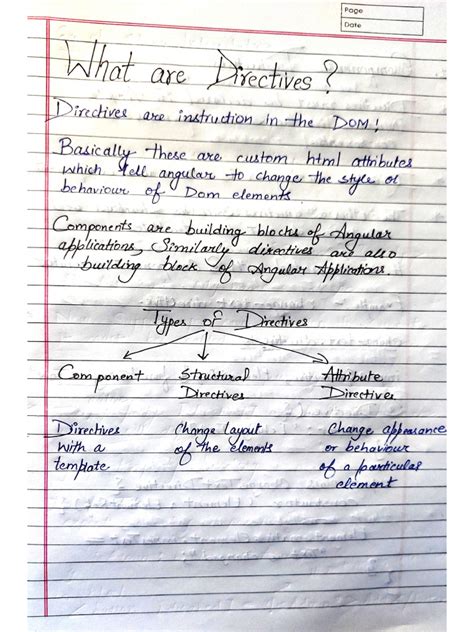 Page
Date
What are Directives?
Directives are instruction in the DOM!
Basically these are custom html attributes
which tell angular to change the style or
behaviour of Dom elements.
Components are building blocks of Angular
applications, Similarly directives are also
building block of Angular Applications.
Types of Directives
Component Structural Attribute
Directives Directives
Directives Change layout Change appearance
with a of the elements or behaviour
template of a particular
element